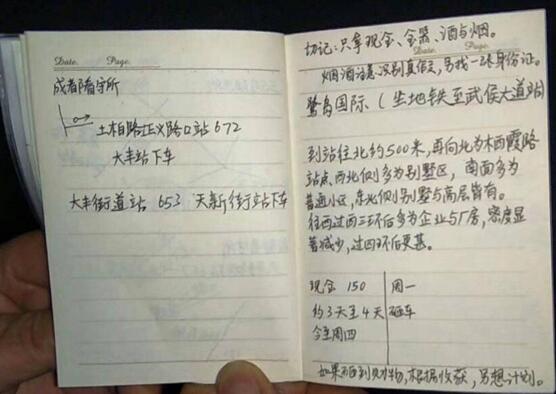 Date. Page.
成者陏看守所
土柏路正义路口站672
大丰站下车
大丰街道站 653 天新街行站下车
切记：只拿现金、金器、酒与烟。
Date. Page.
烟酒注意识别真假，另找一张身份证。
鹭岛国际（坐地铁至武侯大道站）
到站往北约500米，再向北为木西霞路
站点，西北侧多为别墅区，南面多为
普通小区，东北侧别墅与高层皆有。
往西过西三环后多为企业与厂房，密度显
著减少，过四环后更甚。
现金 150 周一
约3天至4天 砸车
今至周四
如果不到财物，根据收获，另想计划。